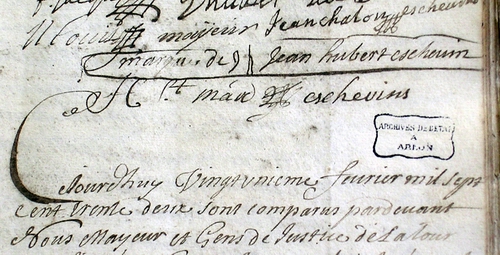 mayeur Jean chalou eschevins
marque de Jean hubert eschevin
eschevins
ARCHIVES DE L'ETAT
A
ARLON
Cejourdhuy Vingtunieme feurier mil sept
cent trente deux sont comparus pardeuant
Nous Mayeur et Gens de Justice de Latour